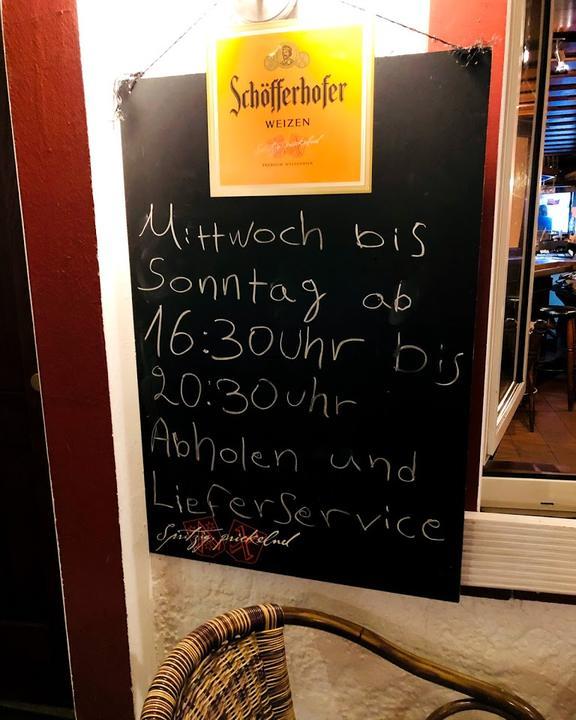 Schöfferhofer
WEIZEN
Spritzig prickelnd
PREMIUM WEISSBIER
Mittwoch bis
Sonntag ab
16:30Uhr bis
20:30Uhr
Abholen und
Lieferservice
Spritzig prickelnd